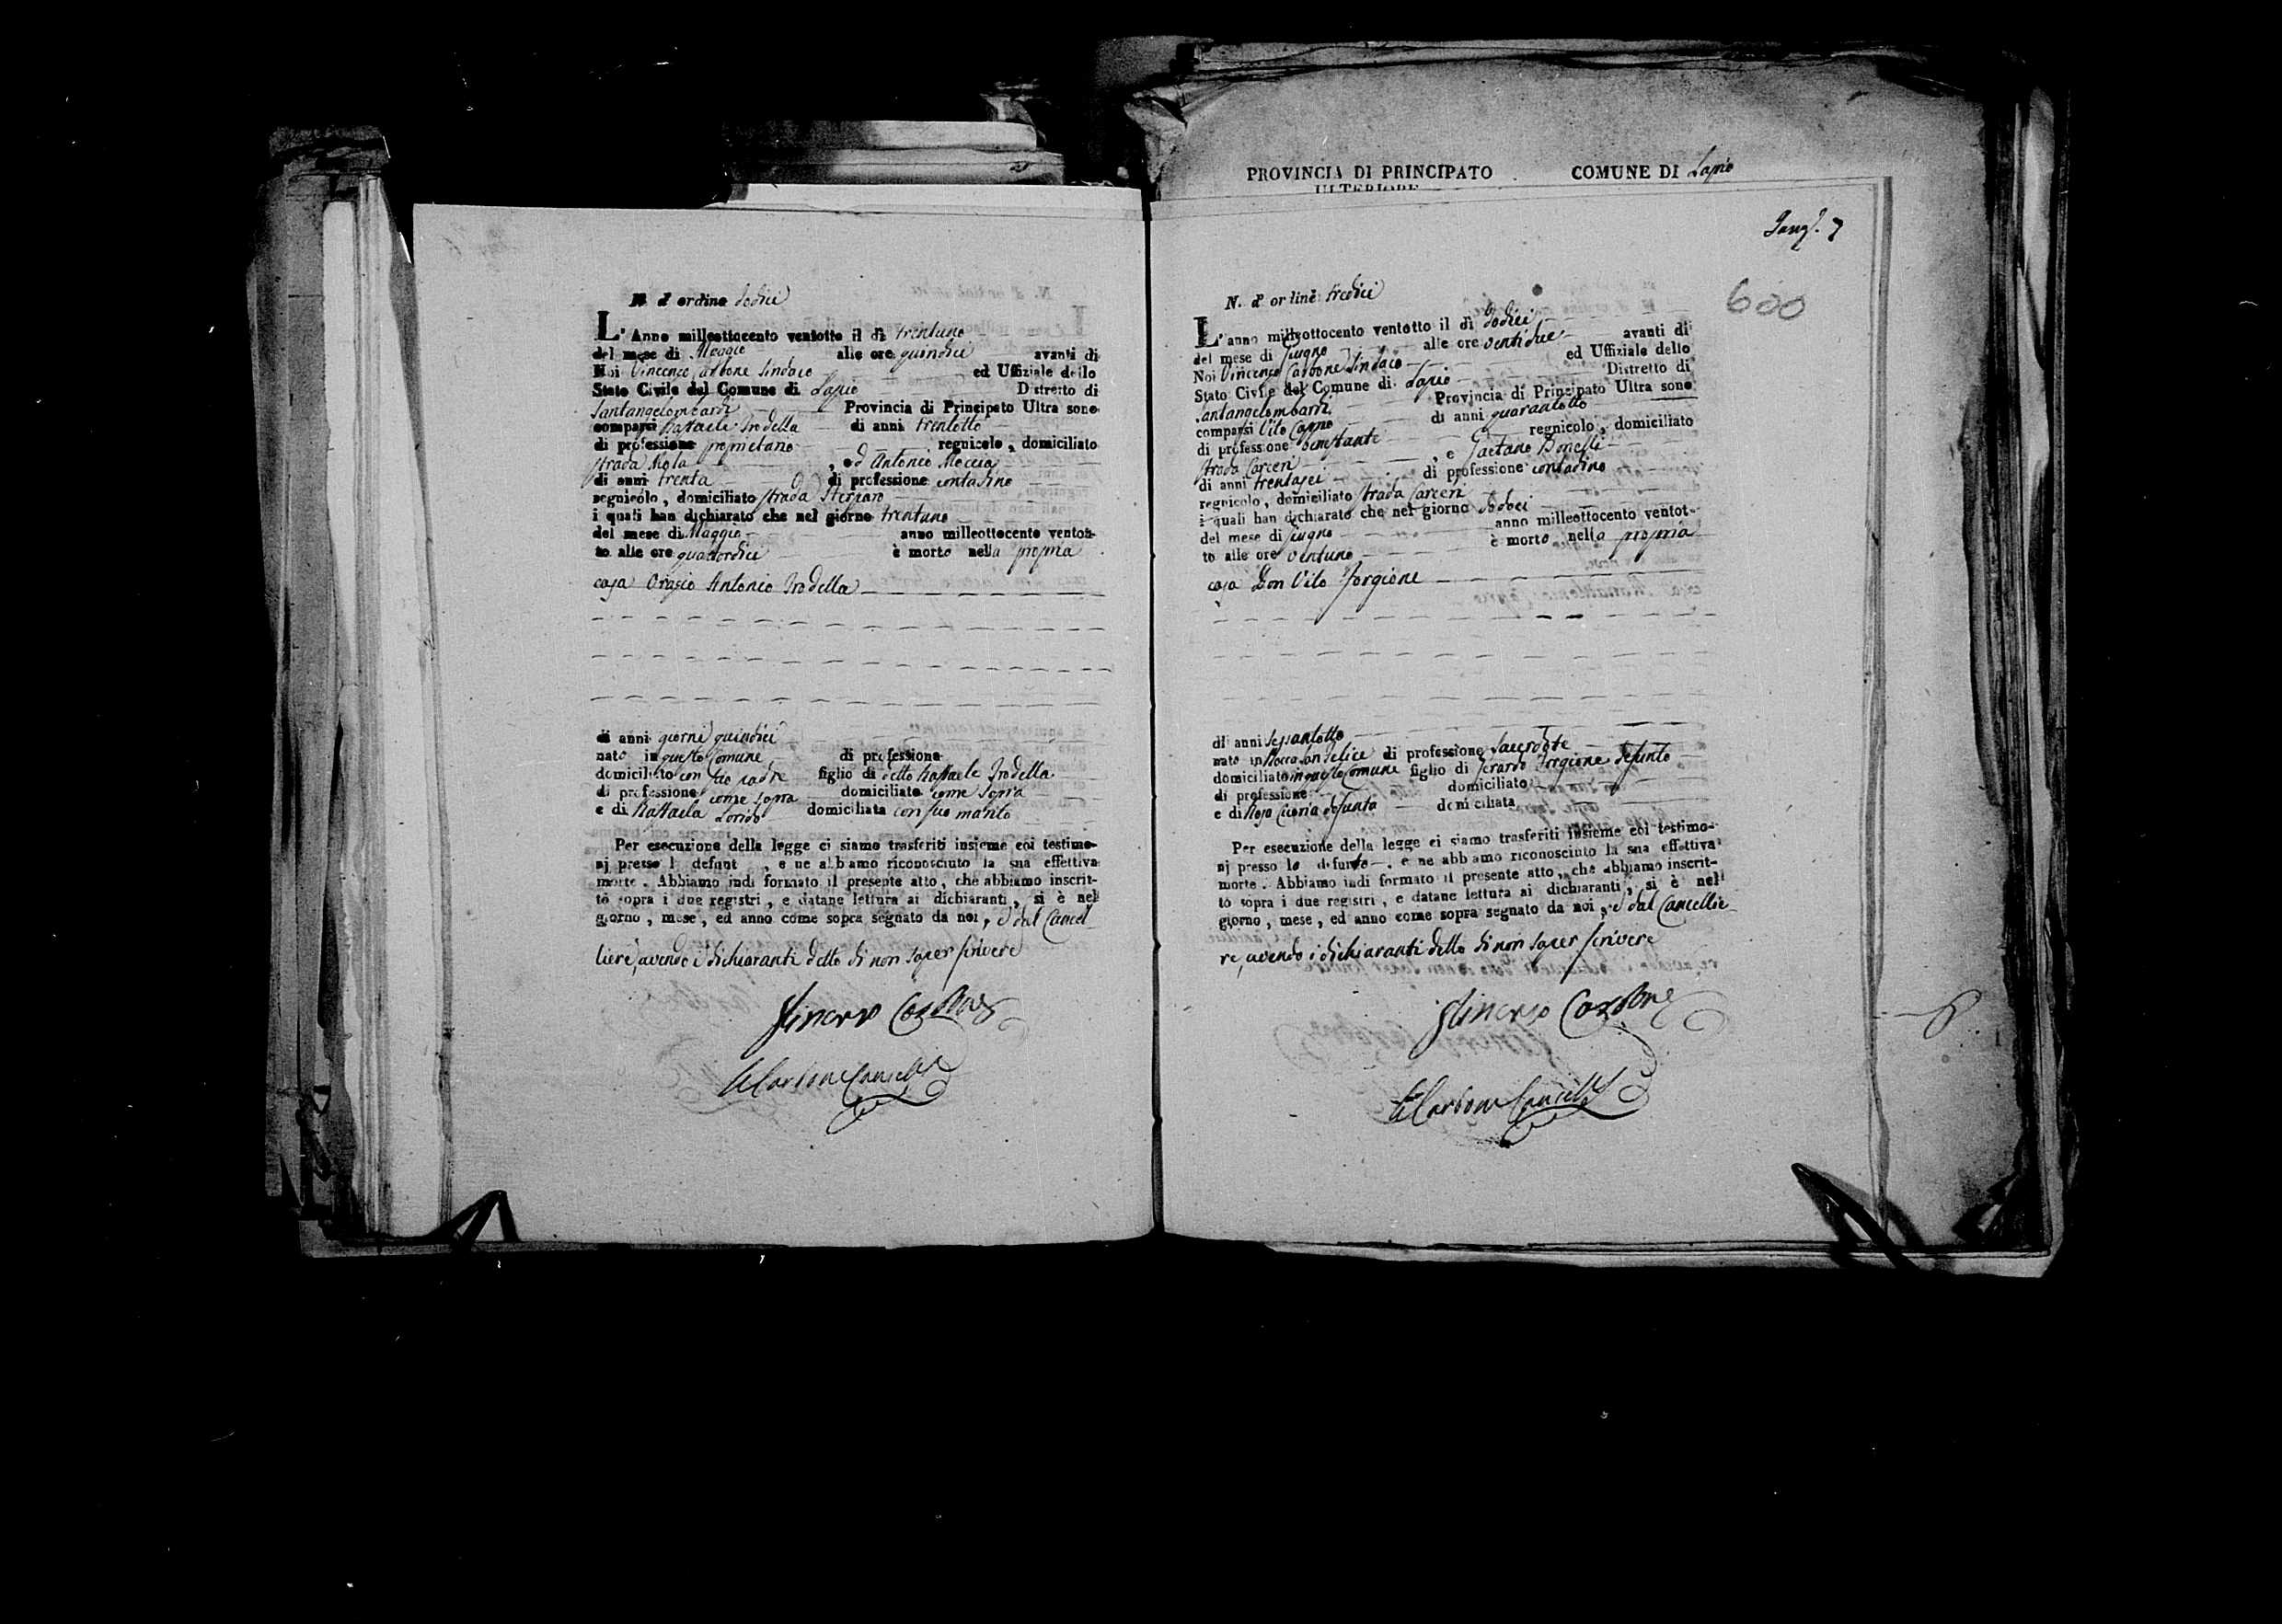 N. d' ordine dodici
L'Anno milleottocento ventotto il dì trentuno
del mese di Maggio alle ore quindici avanti di
Noi Vincenzo Carbone Sindaco ed Uffiziale dello
Stato Civile del Comune di Lapio Distretto di
Santangelombardi Provincia di Principato Ultra sono
comparsi Raffaele Trodella di anni trentotto
di professione proprietario regnicolo, domiciliato
strada Mola, ed Antonio Moccia
di anni trenta di professione contadino
regnicolo, domiciliato strada
i quali han dichiarato che nel giorno trentuno
del mese di Maggio anno milleottocento ventot-
to alle ore quattordici è morto nella propria
casa Orazio Antonio Trodella
di anni giorni quindici
nato in questo Comune di professione
domiciliato con suo padre figlio di detto Raffaele Trodella
di professione come sopra domiciliato come sopra
e di Raffaela domiciliata con suo marito
Per esecuzione della legge ci siamo trasferiti insieme coi testimo-
nj presso l defunt , e ne abbiamo riconosciuto la sua effettiva
morte. Abbiamo indi formato il presente atto, che abbiamo inscrit-
to sopra i due registri, e datane lettura ai dichiaranti, si è nel
giorno, mese, ed anno come sopra segnato da noi, e dal Cancel-
liere, avendo i dichiaranti detto di non saper scrivere
Vincenzo Carbone
Carbone Cancell
PROVINCIA DI PRINCIPATO COMUNE DI Lapio
ULTERIORE
7
600
N. d' ordine tredici
L'anno milleottocento ventotto il dì dodici
del mese di Giugno alle ore ventidue avanti di
Noi Vincenzo Carbone Sindaco ed Uffiziale dello
Stato Civile del Comune di Lapio Distretto di
Santangelombardi Provincia di Principato Ultra sono
comparsi Vito Carpio di anni quarantotto
di professione benestante regnicolo, domiciliato
strada Carceri, e Gaetano Donelli
di anni trentasei di professione contadino
regnicolo, domiciliato strada Carceri
i quali han dichiarato che nel giorno dodeci
del mese di Giugno anno milleottocento ventot-
to alle ore ventuno è morto nella propria
casa Don Vito Forgione
di anni sessantotto
nato in Rocca San Felice di professione Sacerdote
domiciliato in questo Comune figlio di Gerardo Forgione defunto
di professione domiciliato
e di Rosa defunta domiciliata
Per esecuzione della legge ci siamo trasferiti insieme coi testimo-
nj presso lo defunto, e ne abbiamo riconosciuto la sua effettiva
morte. Abbiamo indi formato il presente atto, che abbiamo inscrit-
to sopra i due registri, e datane lettura ai dichiaranti, si è nel
giorno, mese, ed anno come sopra segnato da noi, e dal Cancellie-
re, avendo i dichiaranti detto di non saper scrivere
Vincenzo Carbone
Carbone Cancell